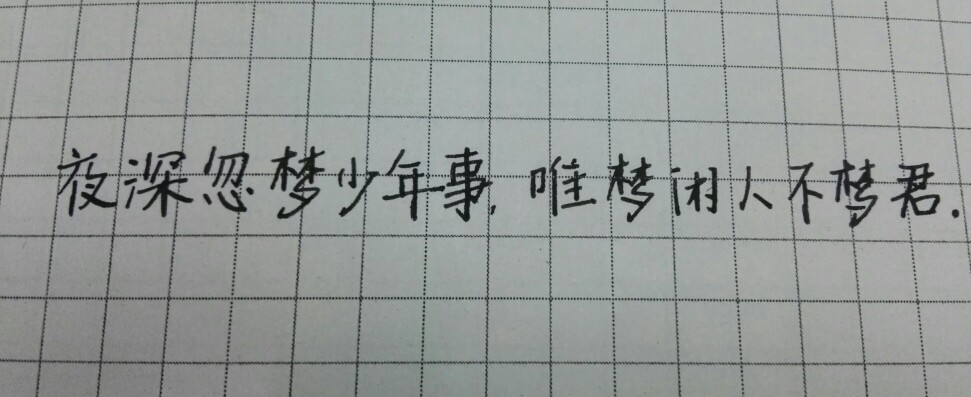 夜深忽梦少年事,唯梦闲人不梦君.